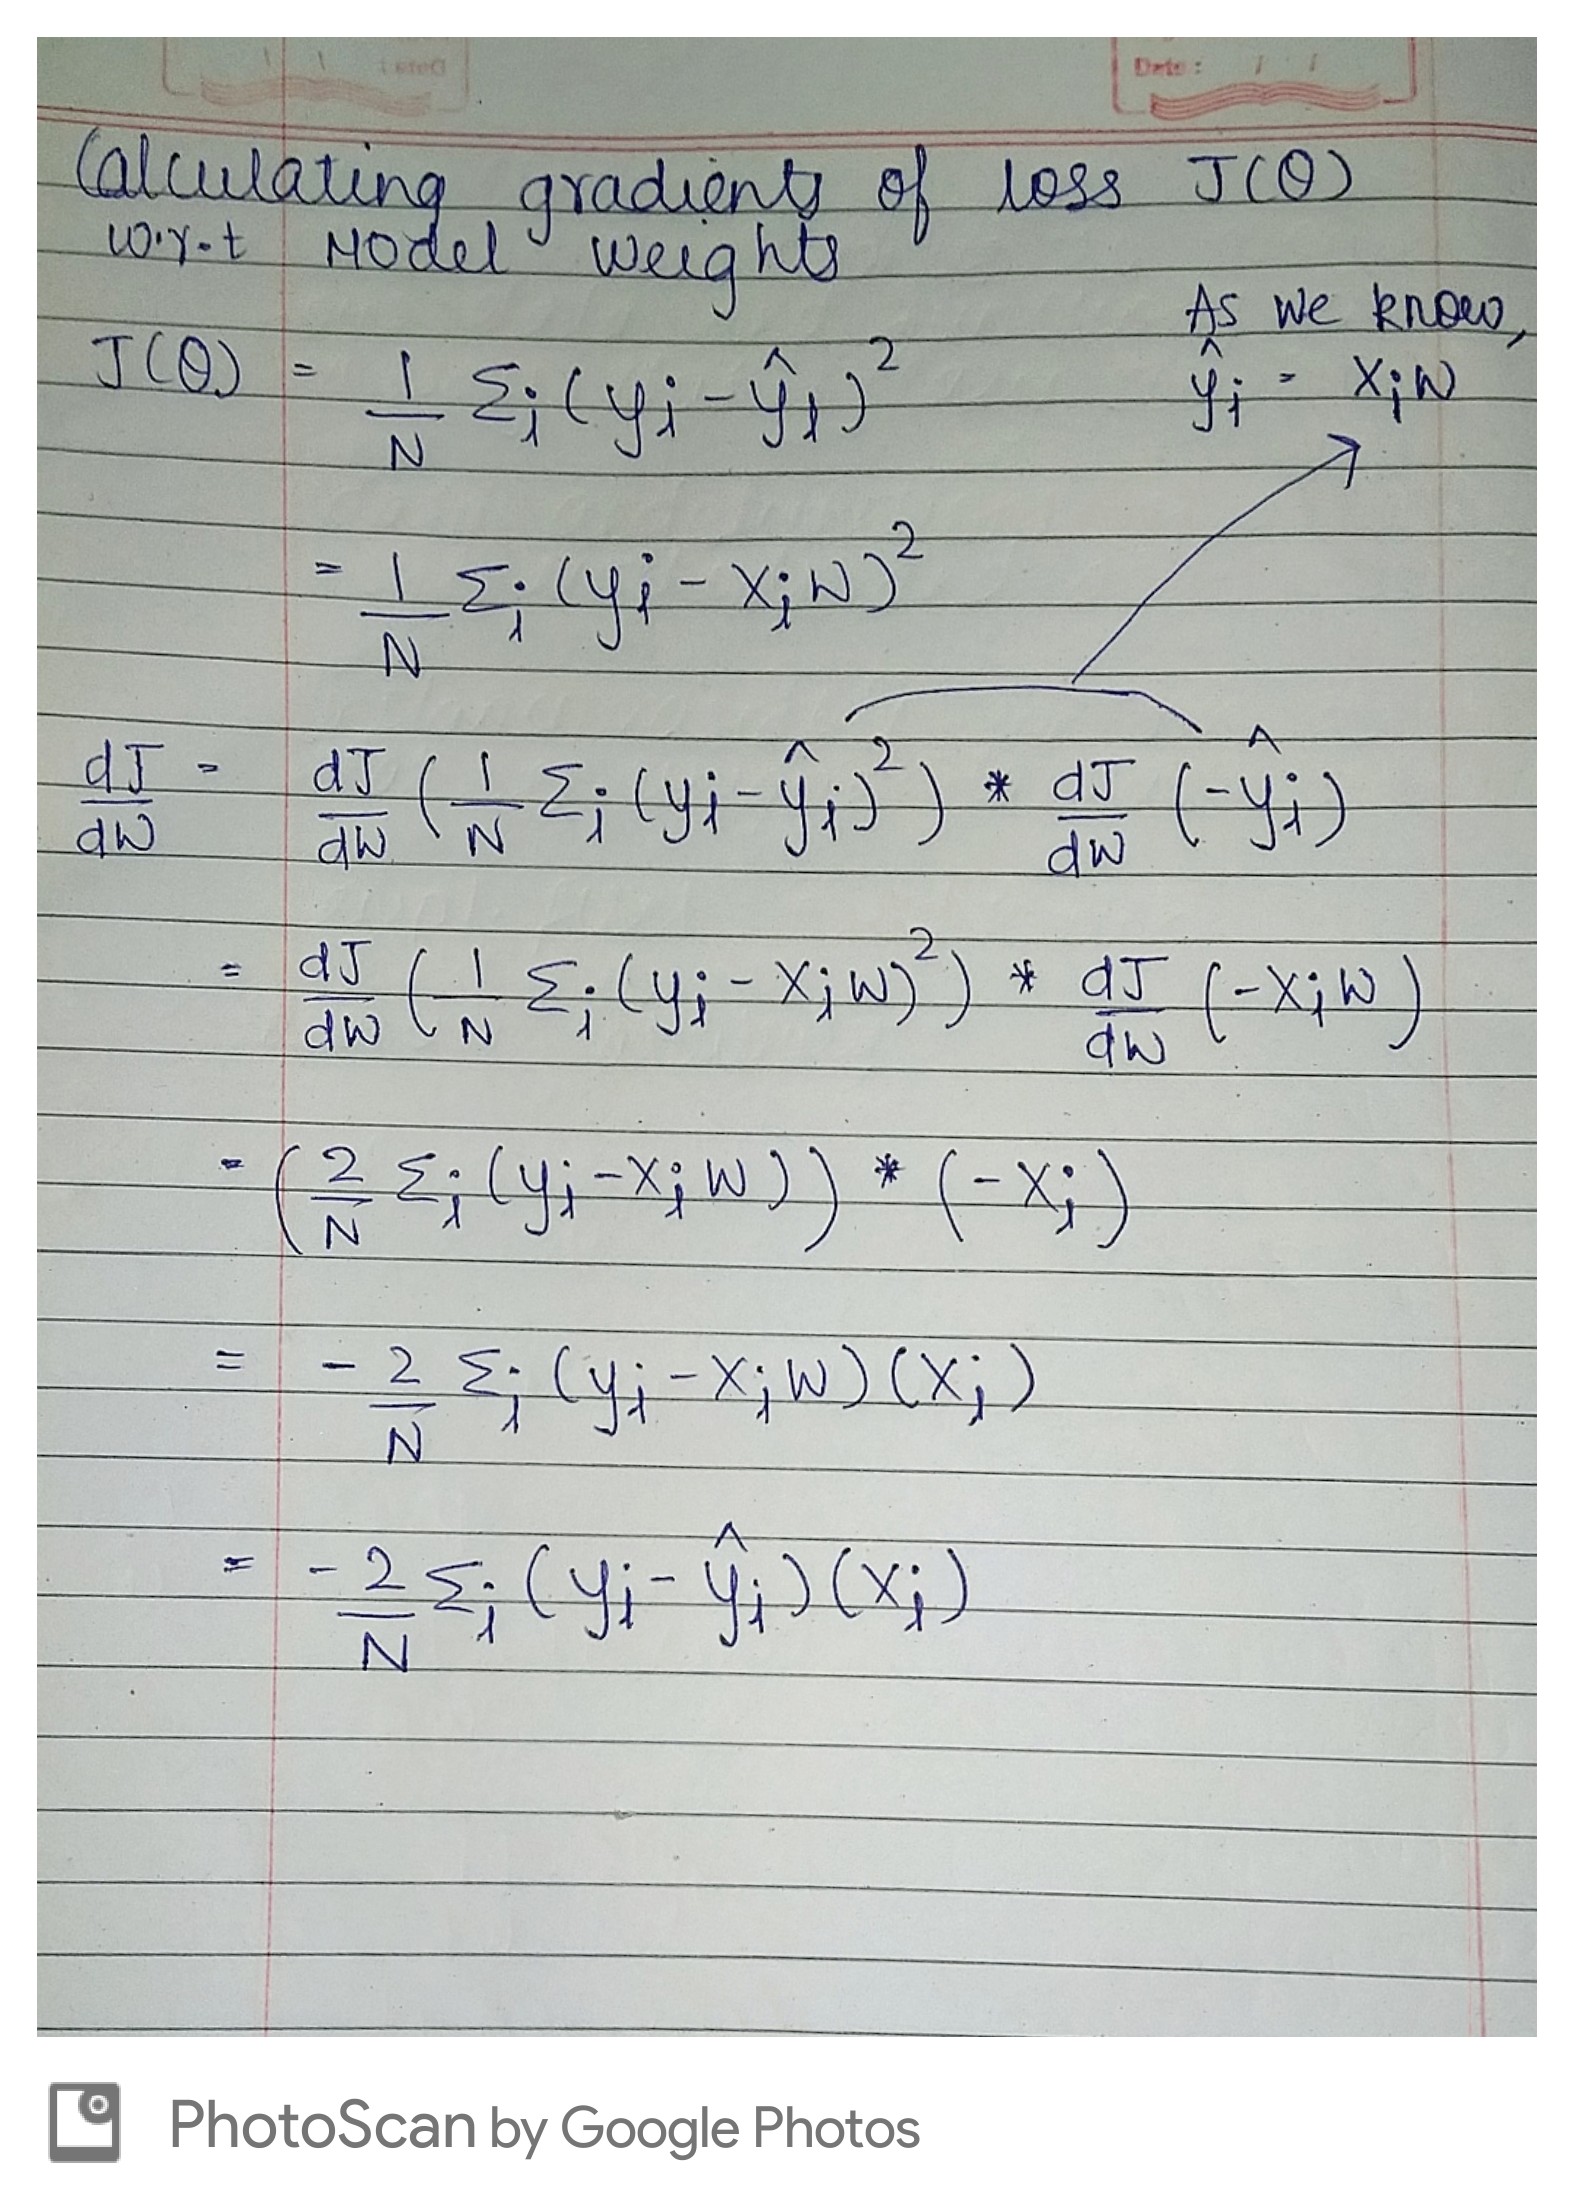 Date :
Calculating gradients of loss J(θ)
w.r.t Model weights
As we know,
J(θ) = 1/N Σi (yi - ŷi)²
ŷi = XiW
= 1/N Σi (yi - XiW)²
dJ/dW = dJ/dW (1/N Σi (yi - ŷi)²) * dJ/dW (-ŷi)
= dJ/dW (1/N Σi (yi - XiW)²) * dJ/dW (-XiW)
= (2/N Σi (yi - XiW)) * (-Xi)
= -2/N Σi (yi - XiW)(Xi)
= -2/N Σi (yi - ŷi)(Xi)
PhotoScan by Google Photos